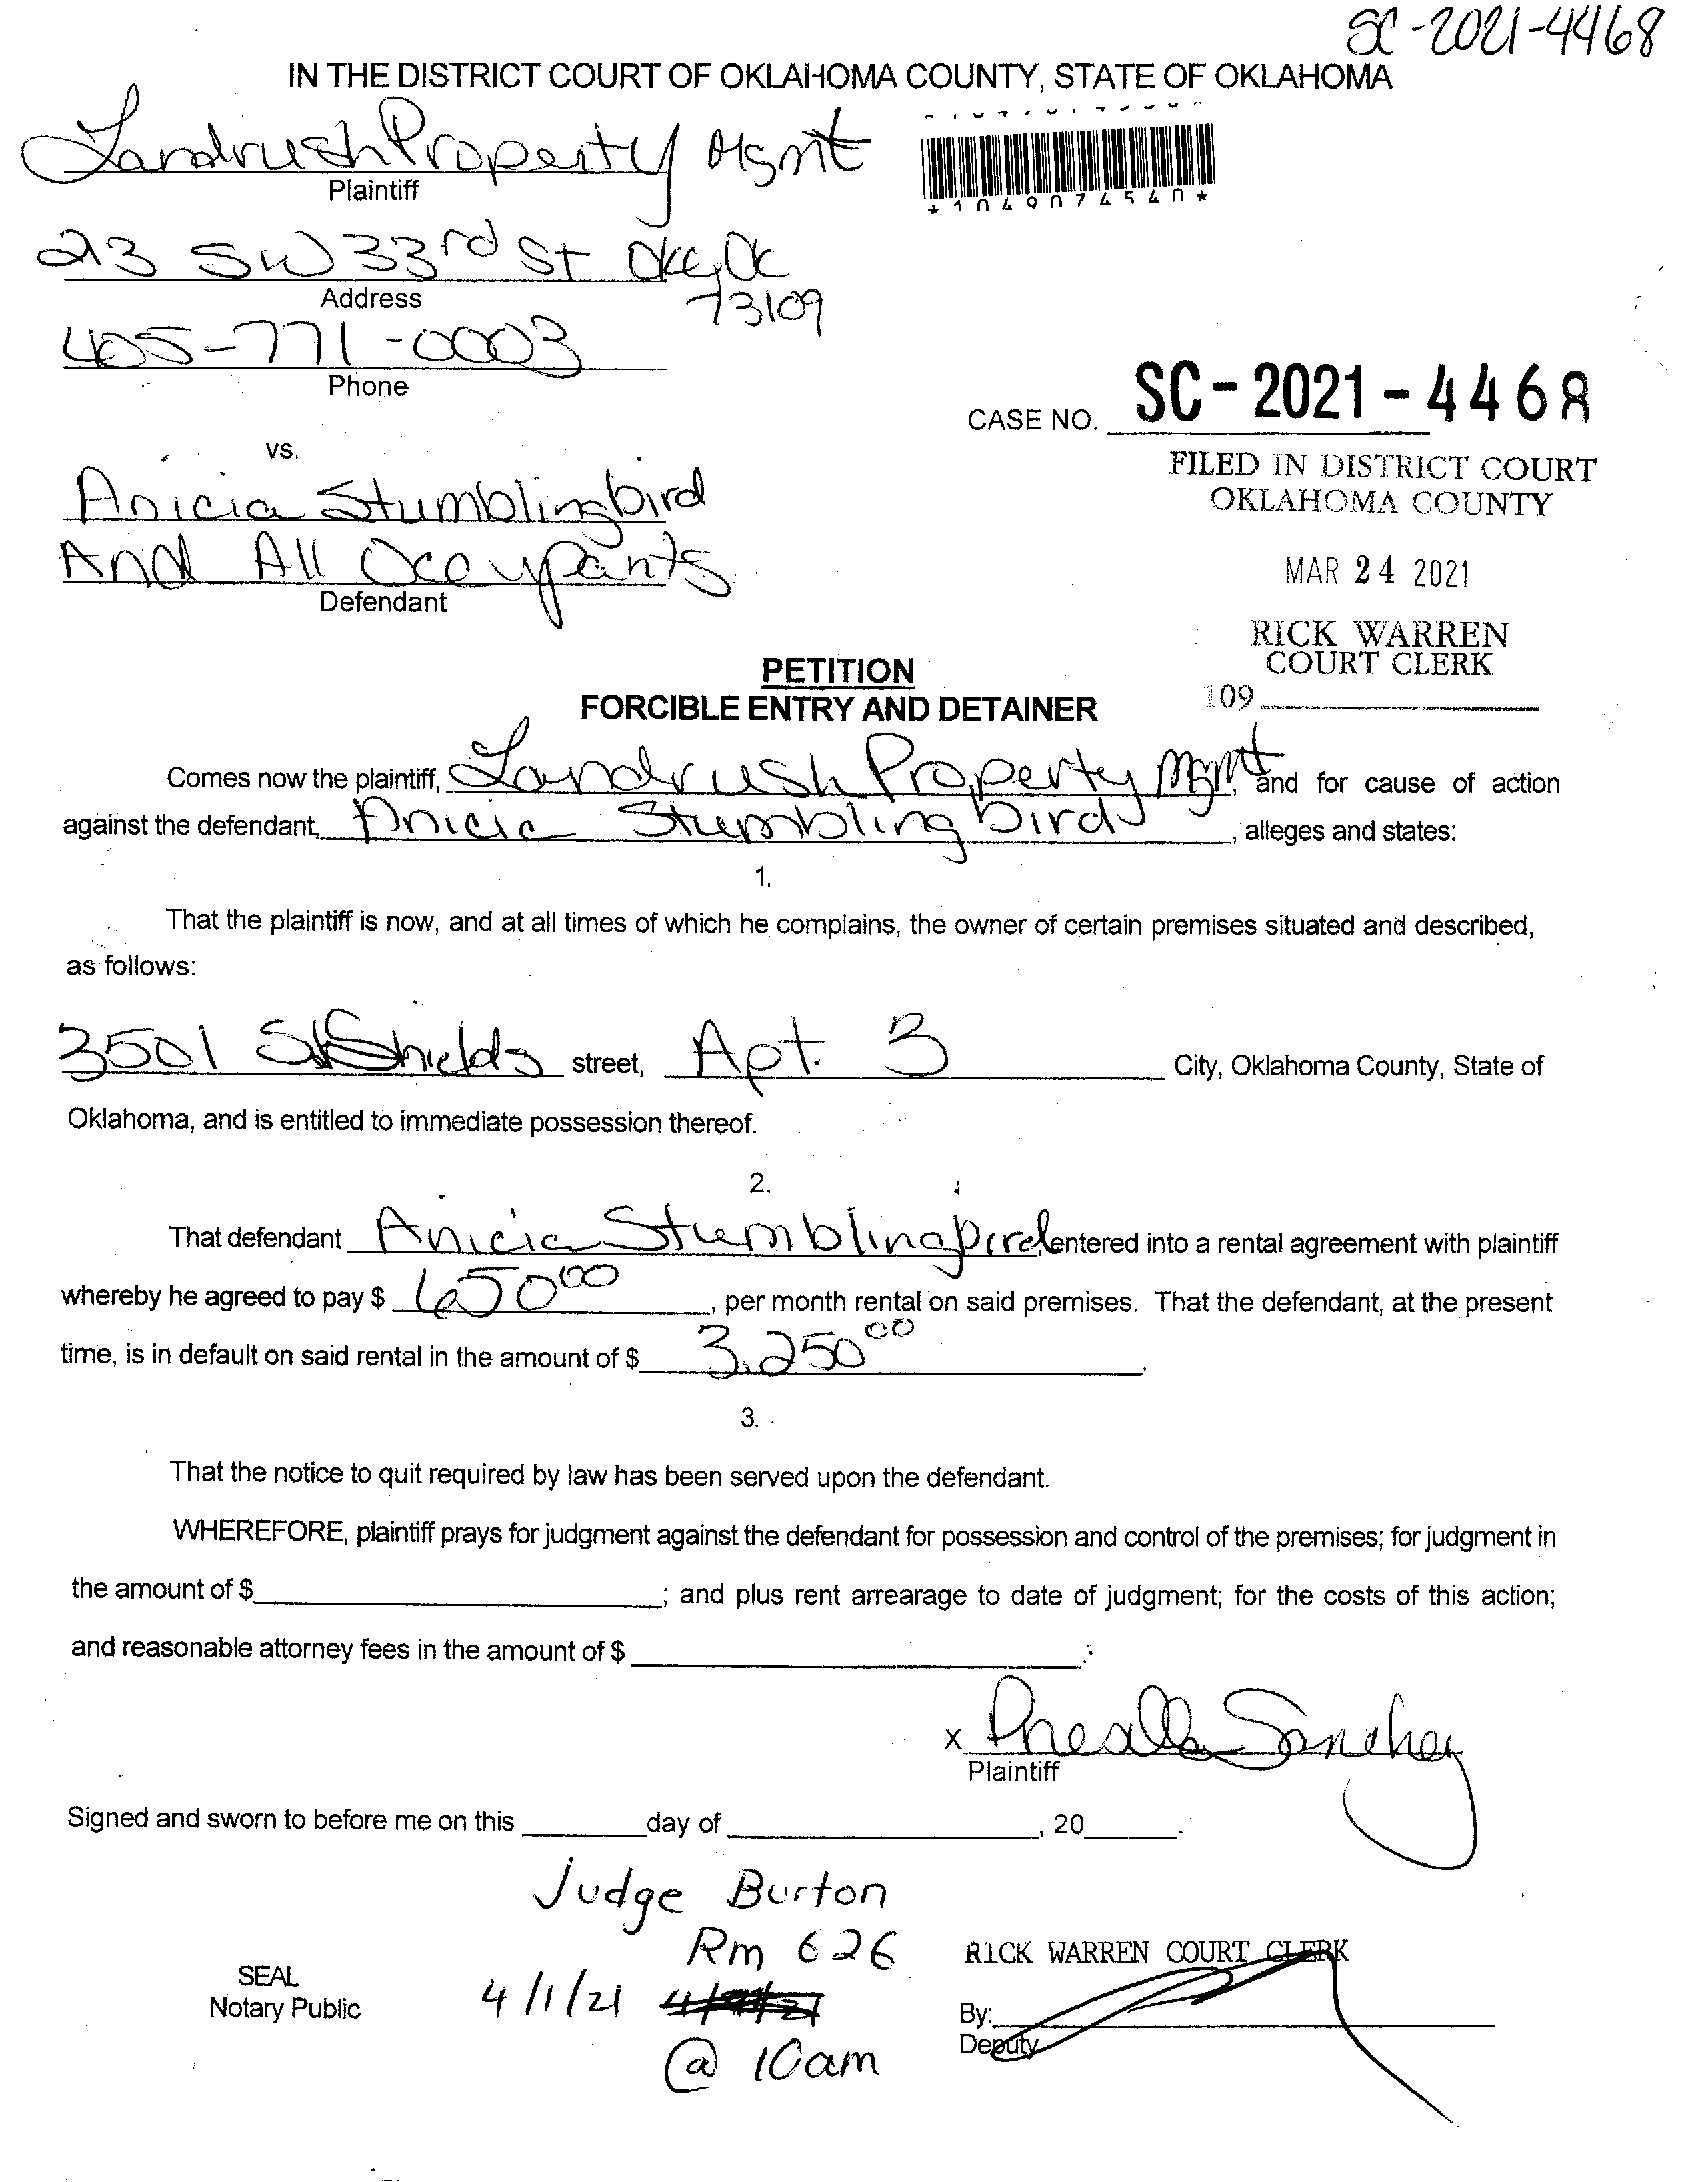 SC-2021-4468
IN THE DISTRICT COURT OF OKLAHOMA COUNTY, STATE OF OKLAHOMA
Landrush Property Mgmt
Plaintiff
*1049074540*
213 SW 33rd St Okc, Ok
Address
73109
405-771-0003
Phone
CASE NO. SC-2021-4468
vs.
FILED IN DISTRICT COURT
OKLAHOMA COUNTY
Anicia Stumblingbird
And All Occupants
Defendant
MAR 24 2021
RICK WARREN
COURT CLERK
109
PETITION
FORCIBLE ENTRY AND DETAINER
Comes now the plaintiff, Landrush Property Mgmt, and for cause of action
against the defendant, Anicia Stumblingbird, alleges and states:
1.
That the plaintiff is now, and at all times of which he complains, the owner of certain premises situated and described,
as follows:
3501 S Shields street, Apt. 3 City, Oklahoma County, State of
Oklahoma, and is entitled to immediate possession thereof.
2.
That defendant Anicia Stumblingbird entered into a rental agreement with plaintiff
whereby he agreed to pay $ 650.00, per month rental on said premises. That the defendant, at the present
time, is in default on said rental in the amount of $ 3,250.00.
3.
That the notice to quit required by law has been served upon the defendant.
WHEREFORE, plaintiff prays for judgment against the defendant for possession and control of the premises; for judgment in
the amount of $ ; and plus rent arrearage to date of judgment; for the costs of this action;
and reasonable attorney fees in the amount of $ .
x Sanchez
Plaintiff
Signed and sworn to before me on this day of , 20 .
Judge Burton
Rm 626
RICK WARREN COURT CLERK
SEAL
Notary Public
4/1/21
@ 10am
By:
Deputy